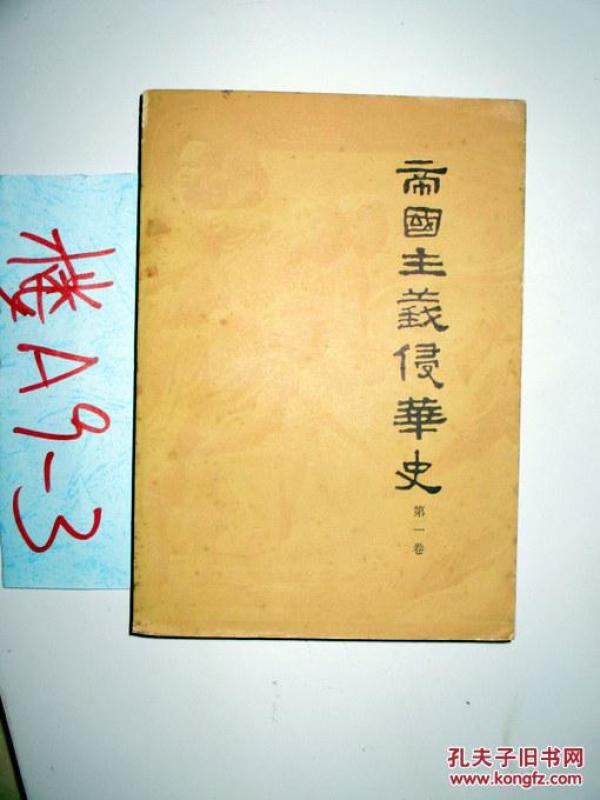 帝國主義侵華史
第一卷
楼A9-3
孔夫子旧书网
www.kongfz.com